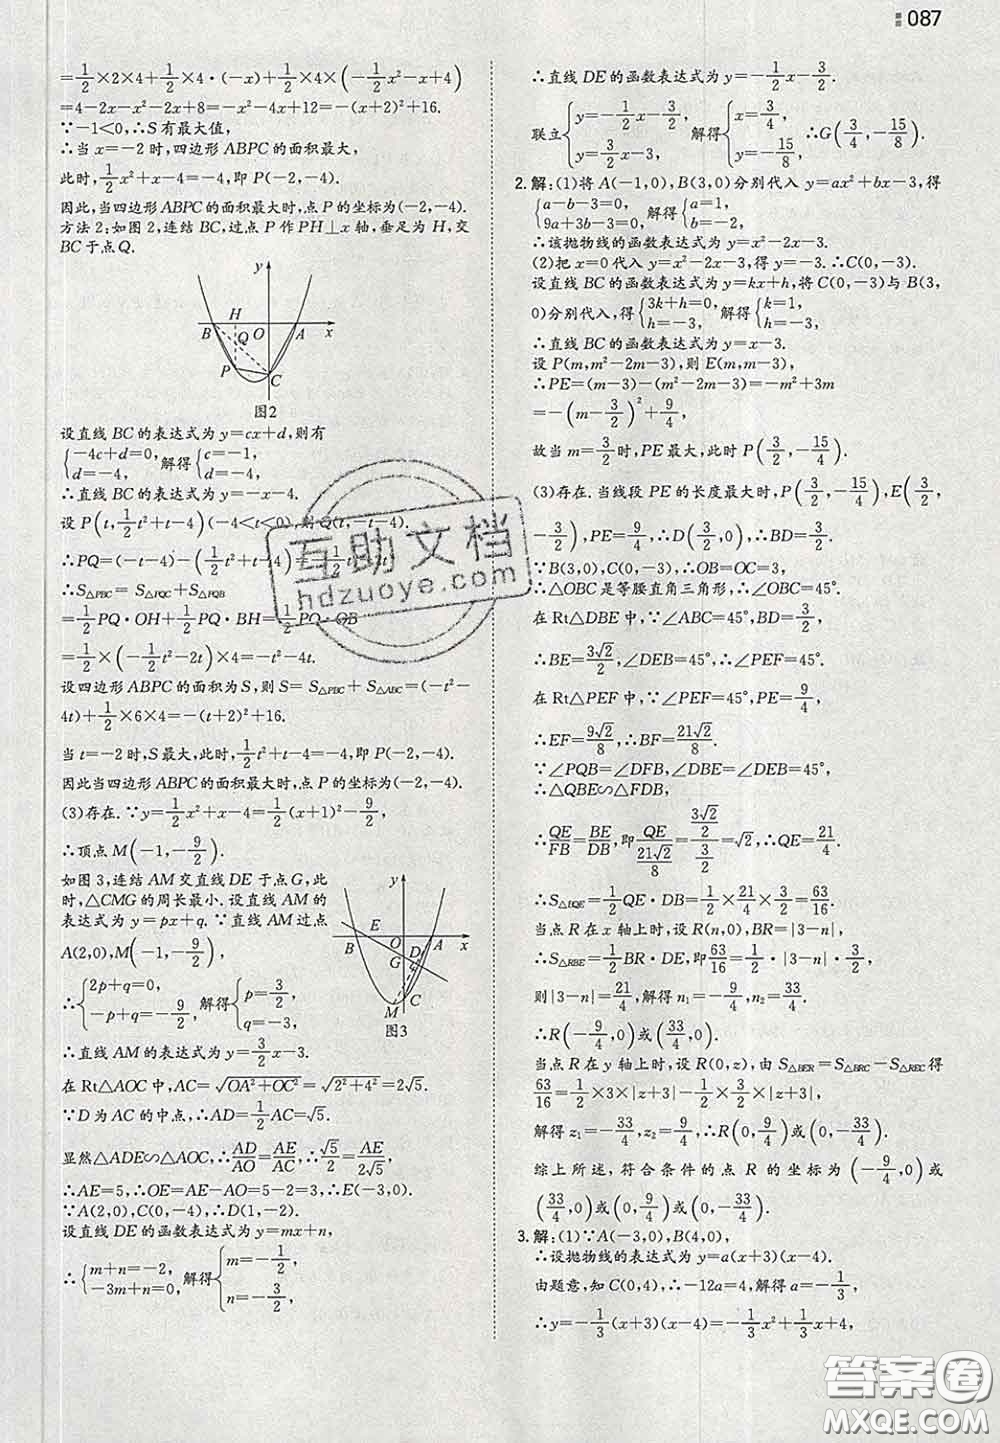 087
=1/2×2×4+1/2×4·(-x)+1/2×4×(-1/2x²-x+4)
=4-2x-x²-2x+8=-x²-4x+12=-(x+2)²+16.
∵-1<0,∴S有最大值,
∴当x=-2时,四边形ABPC的面积最大,
此时,1/2x²+x-4=-4,即P(-2,-4).
因此,当四边形ABPC的面积最大时,点P的坐标为(-2,-4).
方法2:如图2,连结BC,过点P作PH⊥x轴,垂足为H,交
BC于点Q.
y
H
B Q O A x
P C
图2
设直线BC的表达式为y=cx+d,则有
{-4c+d=0, d=-4. 解得{c=-1, d=-4.
∴直线BC的表达式为y=-x-4.
设P(t,1/2t²+t-4)(-4<t<0),则Q(t,-t-4).
∴PQ=(-t-4)-(1/2t²+t-4)=-1/2t²-2t.
∴S△PBC=S△PQC+S△PQB
=1/2PQ·OH+1/2PQ·BH=1/2PQ·OB
=1/2×(-1/2t²-2t)×4=-t²-4t.
设四边形ABPC的面积为S,则S=S△PBC+S△ABC=(-t²-
4t)+1/2×6×4=-(t+2)²+16.
当t=-2时,S最大,此时,1/2t²+t-4=-4,即P(-2,-4).
因此当四边形ABPC的面积最大时,点P的坐标为(-2,-4).
(3)存在.∵y=1/2x²+x-4=1/2(x+1)²-9/2,
∴顶点M(-1,-9/2).
如图3,连结AM交直线DE于点G,此
时,△CMG的周长最小.设直线AM的
表达式为y=px+q.∵直线AM过点
A(2,0),M(-1,-9/2),
∴{2p+q=0, -p+q=-9/2. 解得{p=3/2, q=-3,
y
E
B O D A x
G
M C
图3
∴直线AM的表达式为y=3/2x-3.
在Rt△AOC中,AC=√OA²+OC²=√2²+4²=2√5.
∵D为AC的中点,∴AD=1/2AC=√5.
显然△ADE∽△AOC,∴AD/AO=AE/AC,∴√5/2=AE/2√5.
∴AE=5,∴OE=AE-AO=5-2=3,∴E(-3,0).
∵A(2,0),C(0,-4),∴D(1,-2).
设直线DE的函数表达式为y=mx+n,
∴{m+n=-2, -3m+n=0, 解得{m=-1/2, n=-3/2,
∴直线DE的函数表达式为y=-1/2x-3/2.
联立{y=-1/2x-3/2, y=3/2x-3. 解得{x=3/4, y=-15/8. ∴G(3/4,-15/8).
2.解:(1)将A(-1,0),B(3,0)分别代入y=ax²+bx-3,得
{a-b-3=0, 9a+3b-3=0, 解得{a=1, b=-2,
∴该抛物线的函数表达式为y=x²-2x-3.
(2)把x=0代入y=x²-2x-3,得y=-3.∴C(0,-3).
设直线BC的函数表达式为y=kx+h,将C(0,-3)与B(3,
0)分别代入,得{3k+h=0, h=-3, 解得{k=1, h=-3.
∴直线BC的函数表达式为y=x-3.
设P(m,m²-2m-3),则E(m,m-3)
∴PE=(m-3)-(m²-2m-3)=-m²+3m
=-(m-3/2)²+9/4,
故当m=3/2时,PE最大,此时P(3/2,-15/4).
(3)存在.当线段PE的长度最大时,P(3/2,-15/4),E(3/2,
-3/2),PE=9/4,∴D(3/2,0),∴BD=3/2.
∵B(3,0),C(0,-3),∴OB=OC=3,
∴△OBC是等腰直角三角形,∴∠ABC=45°,
在Rt△DBE中,∵∠ABC=45°,BD=3/2,
∴BE=3√2/2,∠DEB=45°,∴∠PEF=45°.
在Rt△PEF中,∵∠PEF=45°,PE=9/4,
∴EF=9√2/8,∴BF=21√2/8.
∵∠PQB=∠DFB,∠DBE=∠DEB=45°,
∴△QBE∽△FDB,
∴QE/FB=BE/DB,即QE/(21√2/8)=(3√2/2)/(3/2)=√2,∴QE=21/4.
∴S△BQE=1/2QE·DB=1/2×21/4×3/2=63/16.
当点R在x轴上时,设R(n,0),BR=|3-n|,
∴S△RBE=1/2BR·DE,即63/16=1/2·|3-n|·3/2,
则|3-n|=21/4,解得n₁=-9/4,n₂=33/4.
∴R(-9/4,0)或(33/4,0).
当点R在y轴上时,设R(0,z),由S△BER=S△BRC-S△REC得
63/16=1/2×3×|z+3|-1/2×3/2×|z+3|,
解得z₁=-33/4,z₂=9/4,∴R(0,9/4)或(0,-33/4).
综上所述,符合条件的点R的坐标为(-9/4,0)或
(33/4,0)或(0,9/4)或(0,-33/4).
3.解:(1)∵A(-3,0),B(4,0),
∴设抛物线的表达式为y=a(x+3)(x-4).
由题意,知C(0,4),∴-12a=4,解得a=-1/3,
∴y=-1/3(x+3)(x-4)=-1/3x²+1/3x+4,
互助文档
hdzuoye.com
答案圈
MXQE.COM